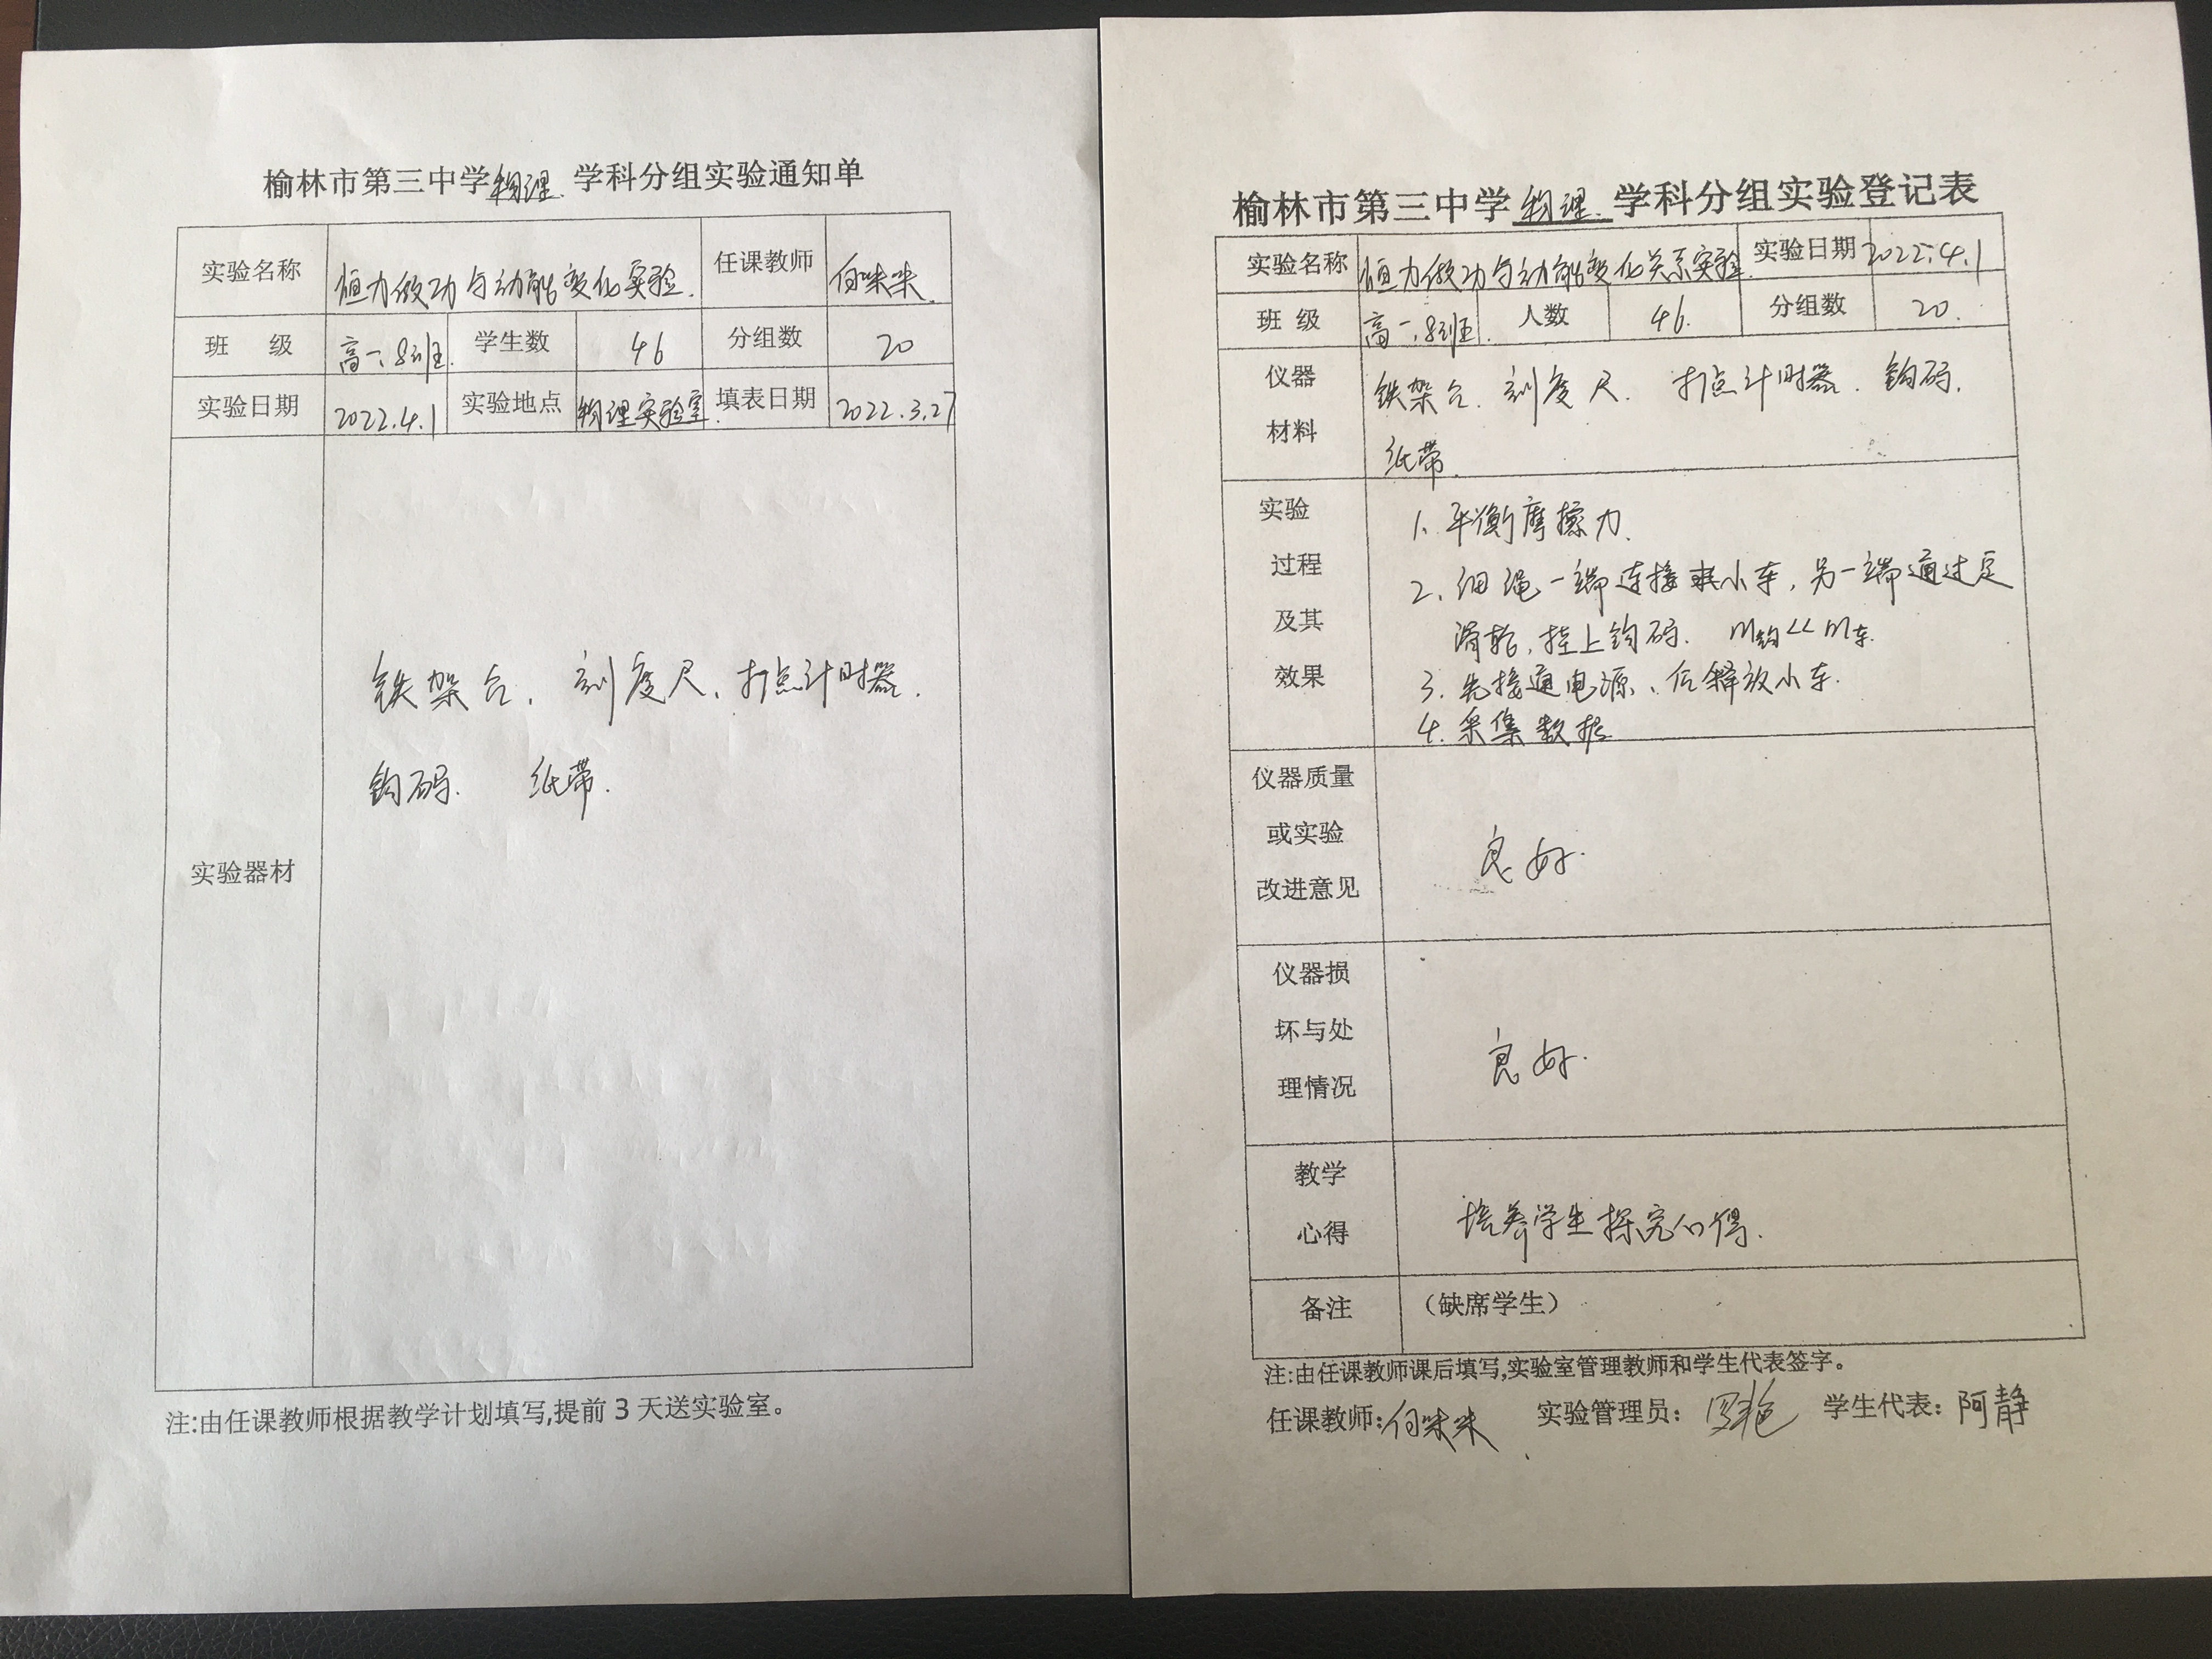 榆林市第三中学物理 学科分组实验通知单
实验名称 恒力做功与动能变化实验. 任课教师
班 级 高一.8班. 学生数 46 分组数 20
实验日期 2022.4.1 实验地点 物理实验室. 填表日期 2022.3.27
实验器材
铁架台. 刻度尺、打点计时器.
钩码. 纸带.
注:由任课教师根据教学计划填写,提前 3 天送实验室。
榆林市第三中学 物理. 学科分组实验登记表
实验名称 恒力做功与动能变化关系实验. 实验日期 2022.4.1
班 级 高一.8班. 人数 46. 分组数 20.
仪器
材料
铁架台. 刻度尺. 打点计时器. 钩码.
纸带.
实验
过程
及其
效果
1. 平衡摩擦力.
2. 细绳一端连接小车, 另一端通过定
滑轮, 挂上钩码. m钩<<m车.
3. 先接通电源、后释放小车.
4. 采集数据
仪器质量
或实验
改进意见
良好.
仪器损
坏与处
理情况
良好.
教学
心得
培养学生探究心得.
备注 （缺席学生）
注:由任课教师课后填写,实验室管理教师和学生代表签字。
任课教师: 实验管理员： 学生代表：阿静